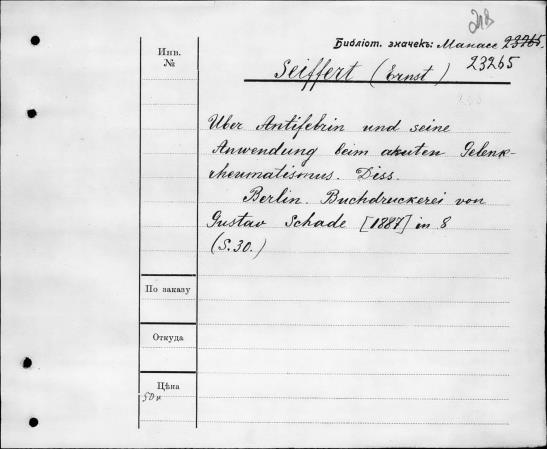 218
Библіот. значекъ: Манасе 23765.
23265
Инв.
№
Seiffert (Ernst)
Über Antifebrin und seine
Anwendung beim akuten Gelenk-
rheumatismus. Diss.
Berlin. Buchdruckerei von
Gustav Schade [1887] in 8
(S. 30.)
По заказу
Откуда
Цѣна
50 к